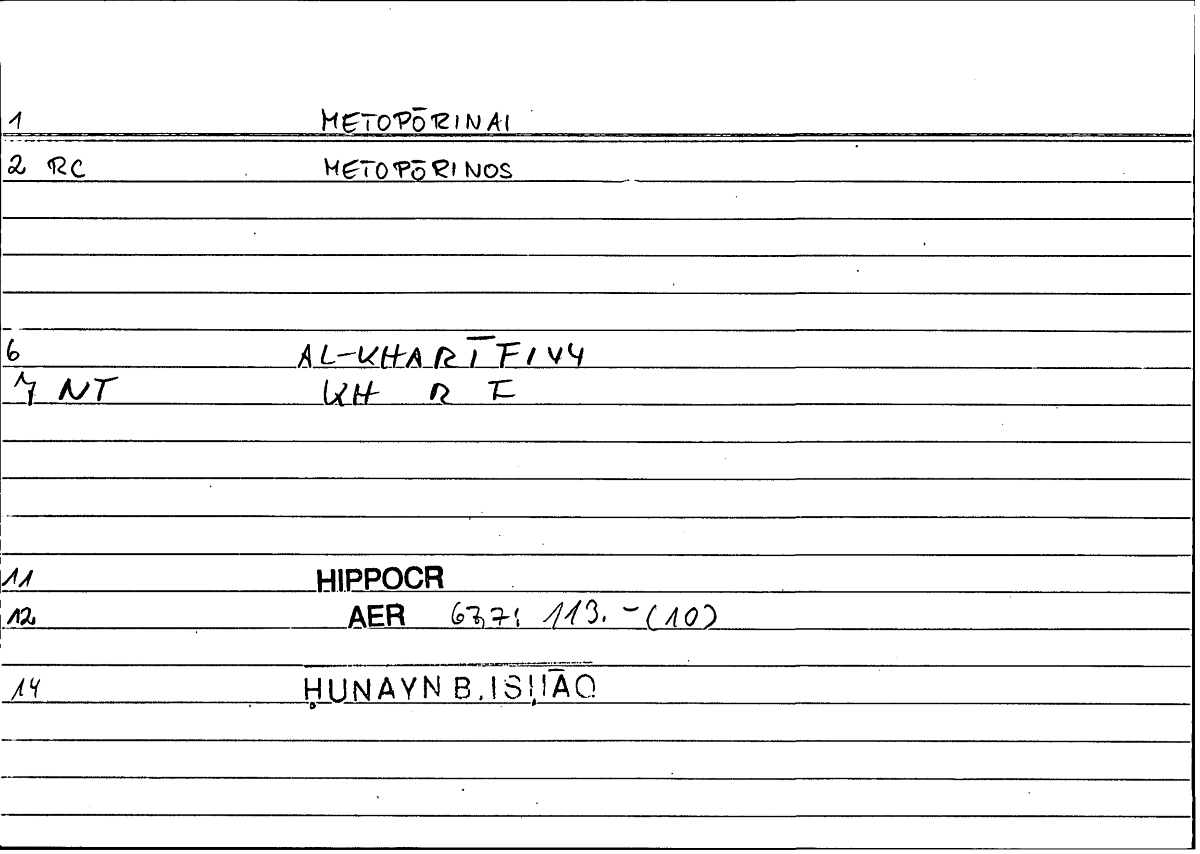 1 METOPŌRINAI
2 RC METOPŌRINOS
6 AL-KHARĪFIYY
7 NT KH R F
11 HIPPOCR
12 AER 67,7; 113.-(10)
14 ḤUNAYN B. ISḤĀQ